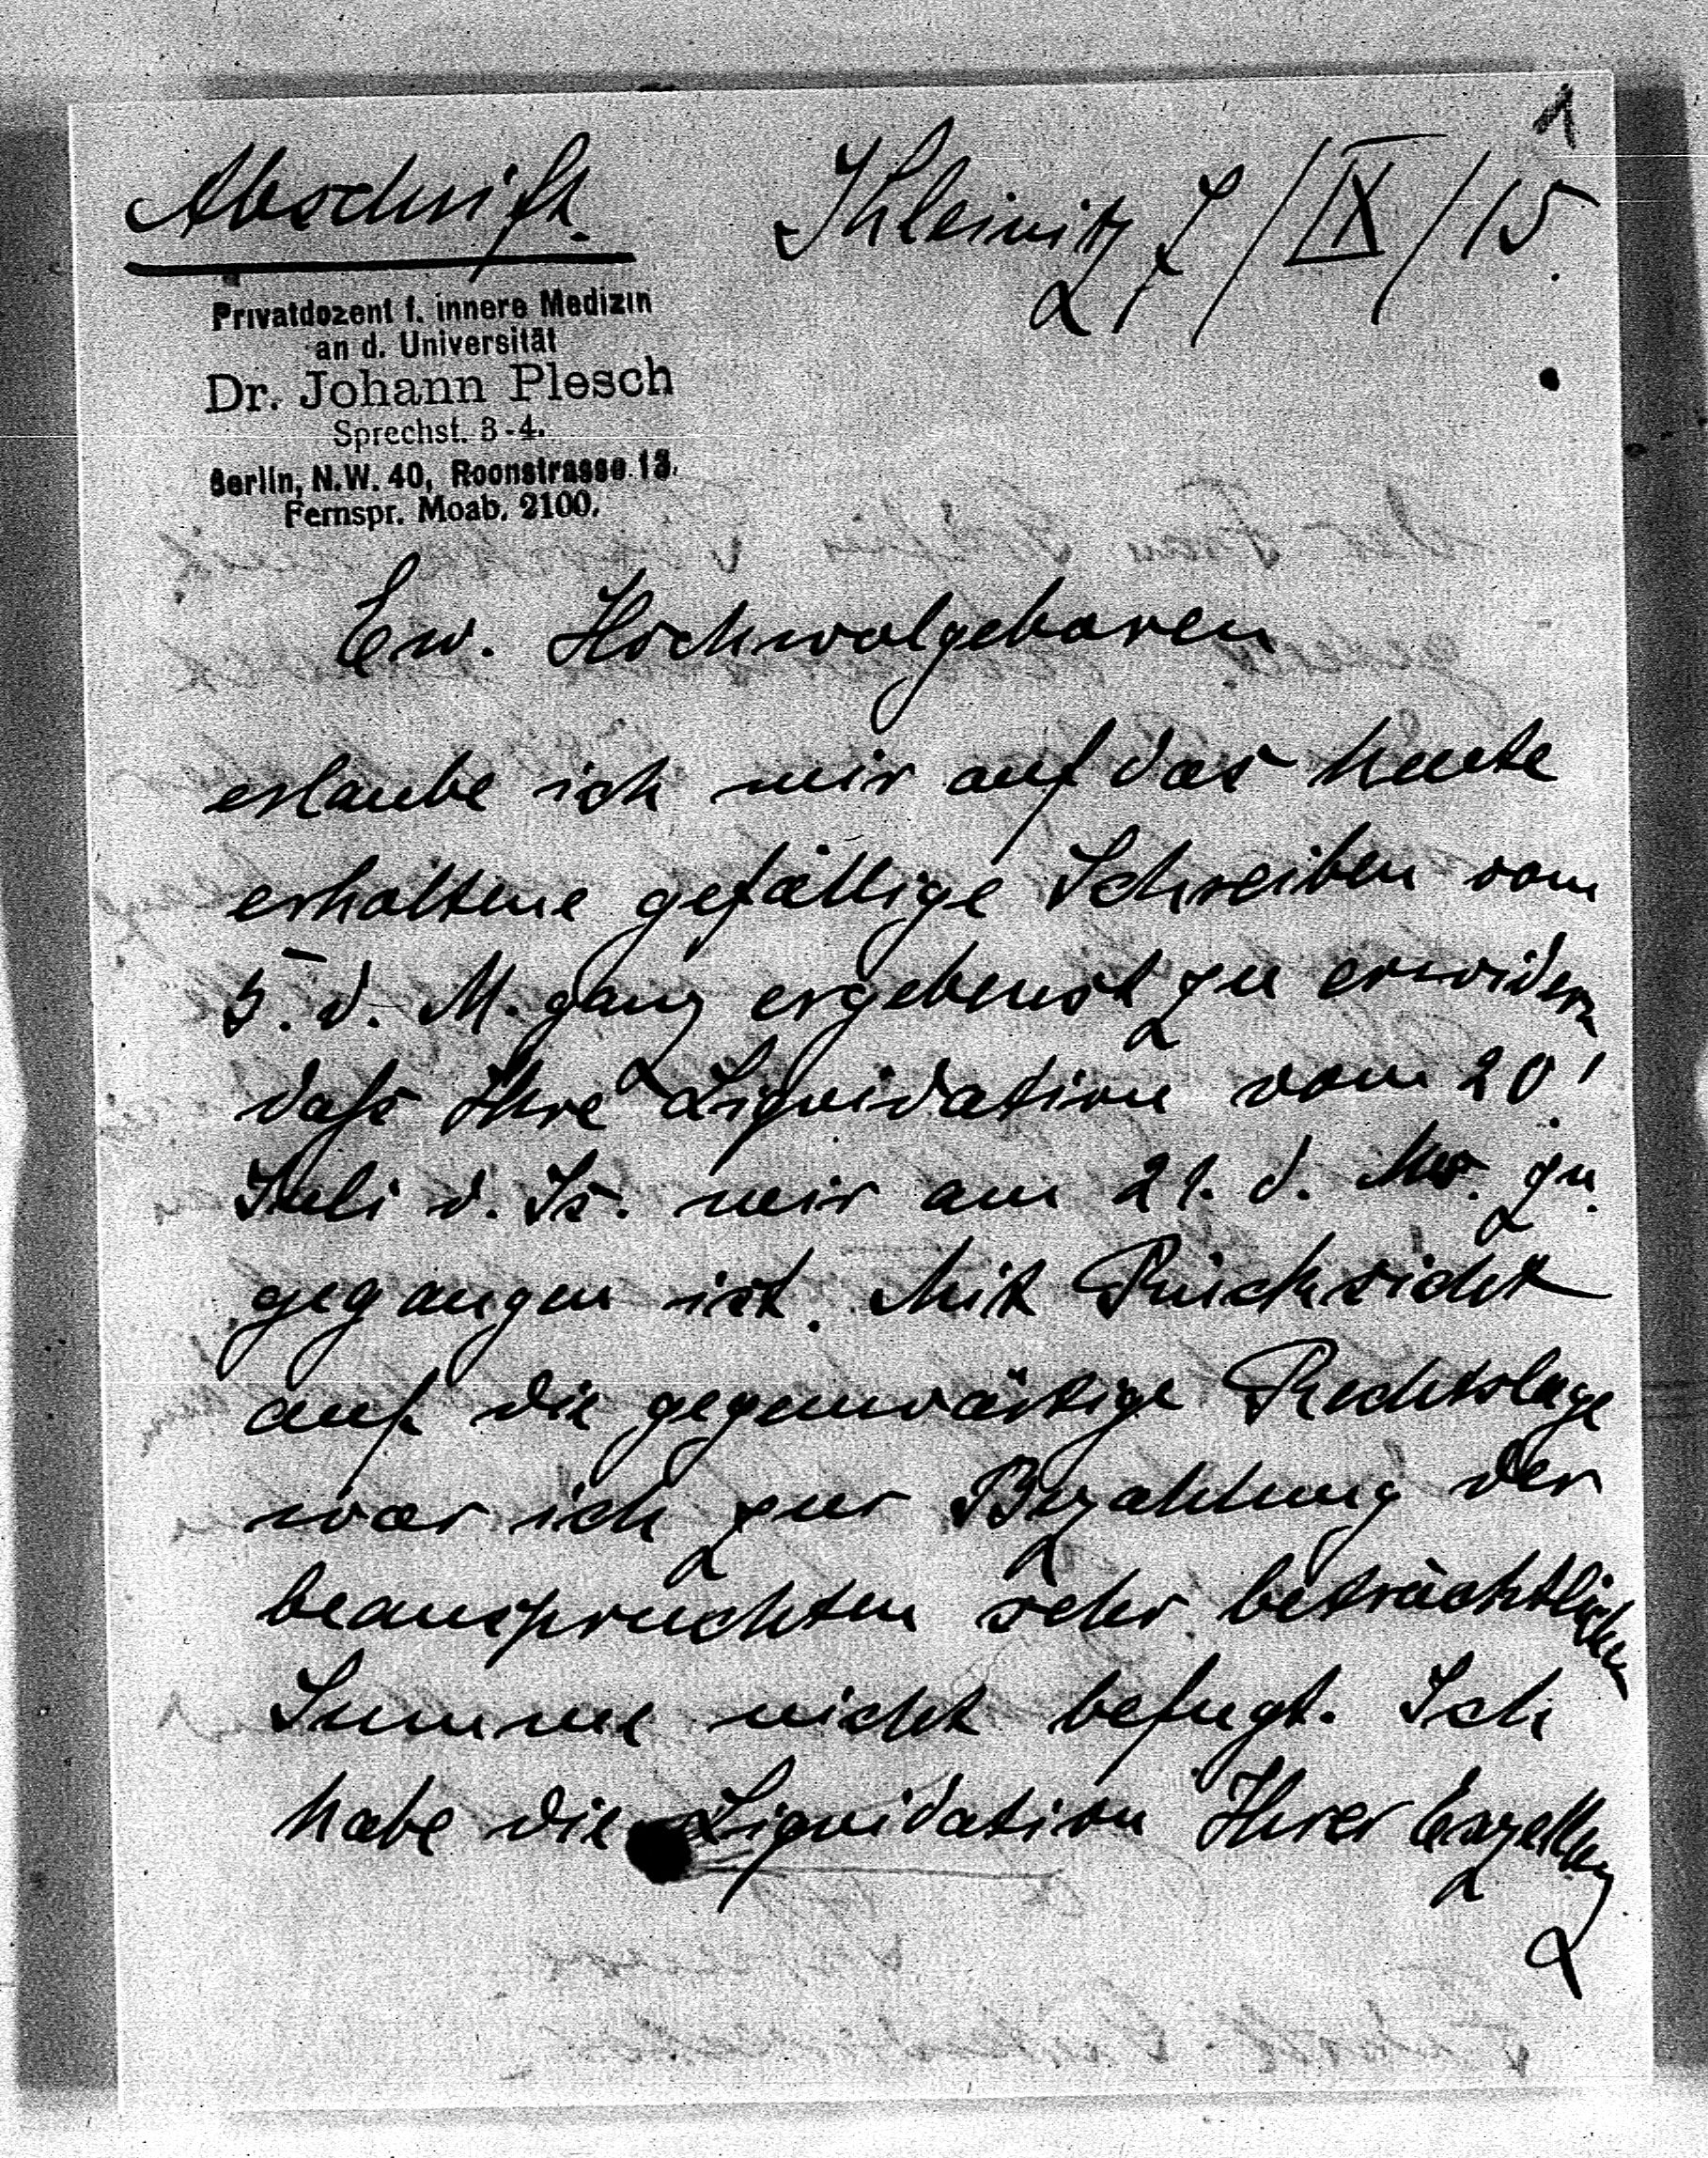 1
Abschrift.
Kleinitz 7/IX/15.
Privatdozent f. innere Medizin
an d. Universität
Dr. Johann Plesch
Sprechst. 3-4.
Berlin, N.W. 40, Roonstrasse 13.
Fernspr. Moab. 2100.
Ew. Hochwolgeboren
erlaube ich mir auf das heute
erhaltene gefällige Schreiben vom
5. d. M. ganz ergebenst zu erwidern
dass Ihre Liquidation vom 20.
Juli d. Js. mir am 21. d. Ms. zu
gegangen ist. Mit Rücksicht
auf die gegenwärtige Rechtslage
war ich zur Bezahlung der
beanspruchten sehr beträchtlichen
Summe nicht befugt. Ich
habe die Liquidation Ihrer Exzellenz